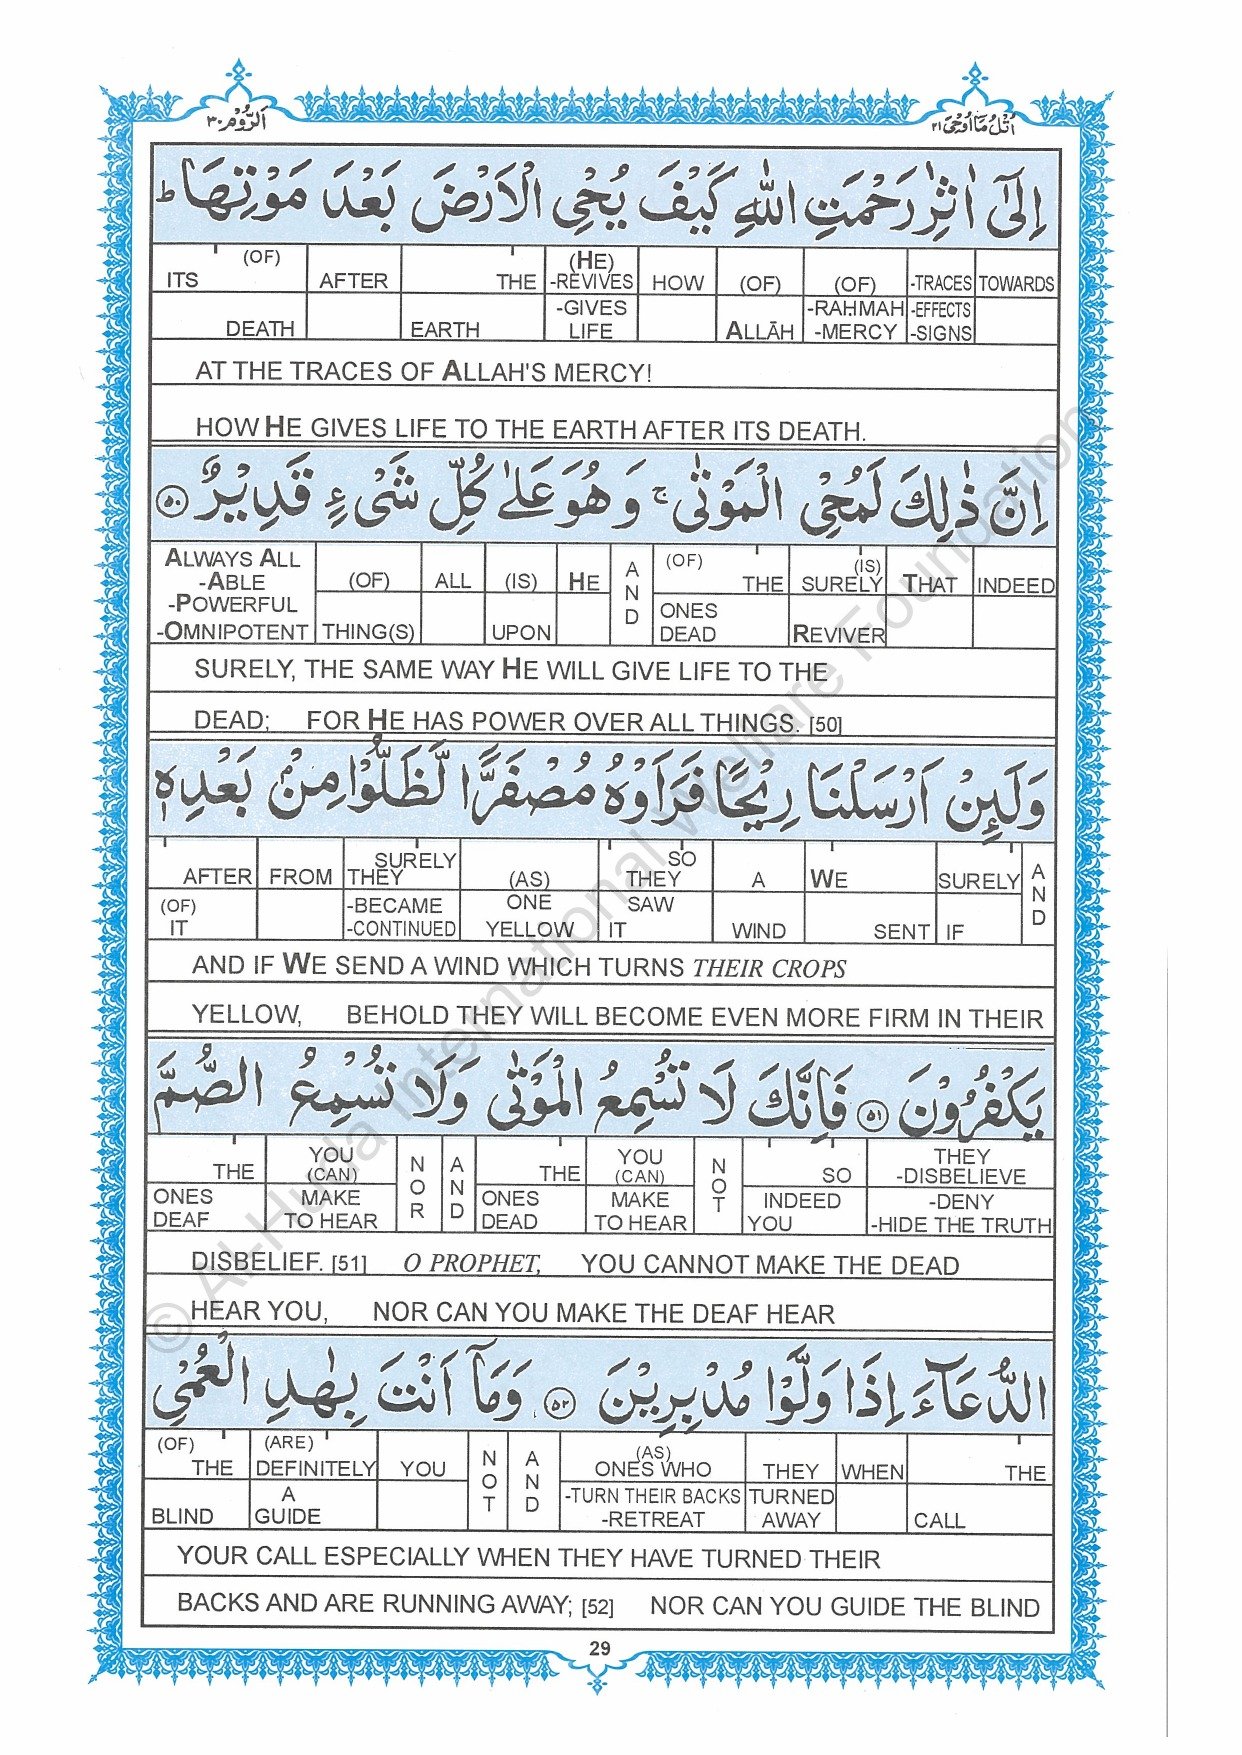 اَلرُّوْمُ ٣٠
اُتْلُ مَاۤ اُوْحِیَ ٢١
اِلٰۤی اٰثٰرِ رَحْمَتِ اللّٰهِ كَیْفَ یُحْیِ الْاَرْضَ بَعْدَ مَوْتِهَا ؕ
ITS (OF) AFTER THE (HE) -REVIVES HOW (OF) (OF) -TRACES TOWARDS
DEATH EARTH -GIVES LIFE ALLĀH -RAḤMAH -MERCY -EFFECTS -SIGNS
AT THE TRACES OF ALLAH'S MERCY!
HOW HE GIVES LIFE TO THE EARTH AFTER ITS DEATH.
اِنَّ ذٰلِكَ لَمُحْیِ الْمَوْتٰی ۚ وَ هُوَ عَلٰی كُلِّ شَیْءٍ قَدِیْرٌ ﴿٥٠﴾
ALWAYS ALL -ABLE (OF) ALL (IS) HE AND (OF) THE (IS) SURELY THAT INDEED
-POWERFUL -OMNIPOTENT THING(S) UPON ONES DEAD REVIVER
SURELY, THE SAME WAY HE WILL GIVE LIFE TO THE
DEAD; FOR HE HAS POWER OVER ALL THINGS. [50]
وَ لَىِٕنْ اَرْسَلْنَا رِیْحًا فَرَاَوْهُ مُصْفَرًّا لَّظَلُّوْا مِنْۢ بَعْدِهٖ
AFTER FROM SURELY THEY (AS) SO THEY A WE SURELY AND
(OF) IT -BECAME -CONTINUED ONE YELLOW SAW IT WIND SENT IF
AND IF WE SEND A WIND WHICH TURNS THEIR CROPS
YELLOW, BEHOLD THEY WILL BECOME EVEN MORE FIRM IN THEIR
یَكْفُرُوْنَ ﴿٥١﴾ فَاِنَّكَ لَا تُسْمِعُ الْمَوْتٰی وَ لَا تُسْمِعُ الصُّمَّ
THE YOU (CAN) NOR AND THE YOU (CAN) NOT SO THEY -DISBELIEVE
ONES DEAF MAKE TO HEAR ONES DEAD MAKE TO HEAR INDEED YOU -DENY -HIDE THE TRUTH
DISBELIEF. [51] O PROPHET, YOU CANNOT MAKE THE DEAD
HEAR YOU, NOR CAN YOU MAKE THE DEAF HEAR
الدُّعَآءَ اِذَا وَلَّوْا مُدْبِرِیْنَ ﴿٥٢﴾ وَ مَاۤ اَنْتَ بِهٰدِ الْعُمْیِ
(OF) THE (ARE) DEFINITELY YOU NOT AND (AS) ONES WHO THEY WHEN THE
BLIND A GUIDE -TURN THEIR BACKS -RETREAT TURNED AWAY CALL
YOUR CALL ESPECIALLY WHEN THEY HAVE TURNED THEIR
BACKS AND ARE RUNNING AWAY; [52] NOR CAN YOU GUIDE THE BLIND
29
© Al-Huda International Welfare Foundation